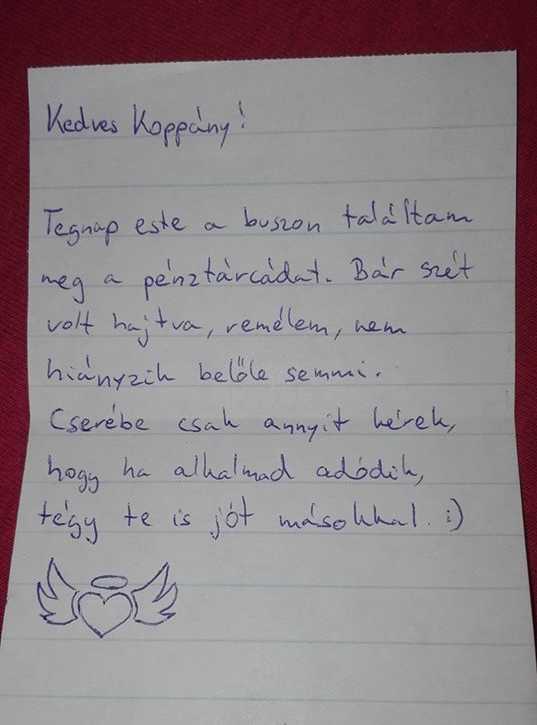 Kedves Koppány!
Tegnap este a buszon találtam
meg a pénztárcádat. Bár szét
volt hajtva, remélem, nem
hiányzik belőle semmi.
Cserébe csak annyit kérek,
hogy ha alkalmad adódik,
tégy te is jót másokkal. :)